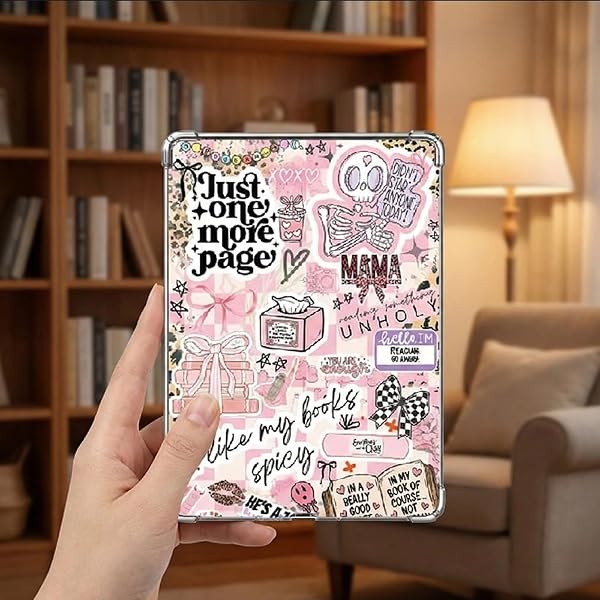 Just
one
more
page
XOXO
DIDN'T
STAB
ANYONE
TODAY
MAMA
reading something
UNHOLY
hello, I'M
READING
GO AWAY!
YOU ARE
Enough
I like my books
spicy
HE'S A
IN A
REALLY
GOOD
IN MY
BOOK OF
COURSE...
NOT